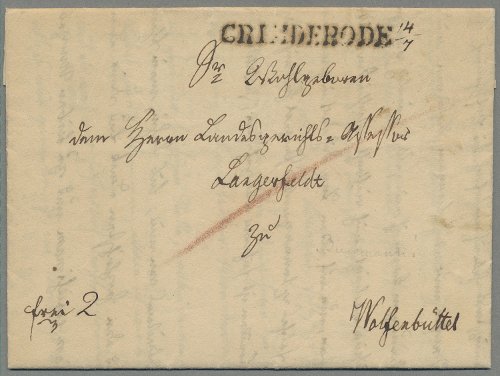 GRENDERODE 14/7
Sr Wohlgeboren
dem Herrn Landesgerichts=Assessor
Langerfeldt
zu
frei 2
Wolfenbüttel